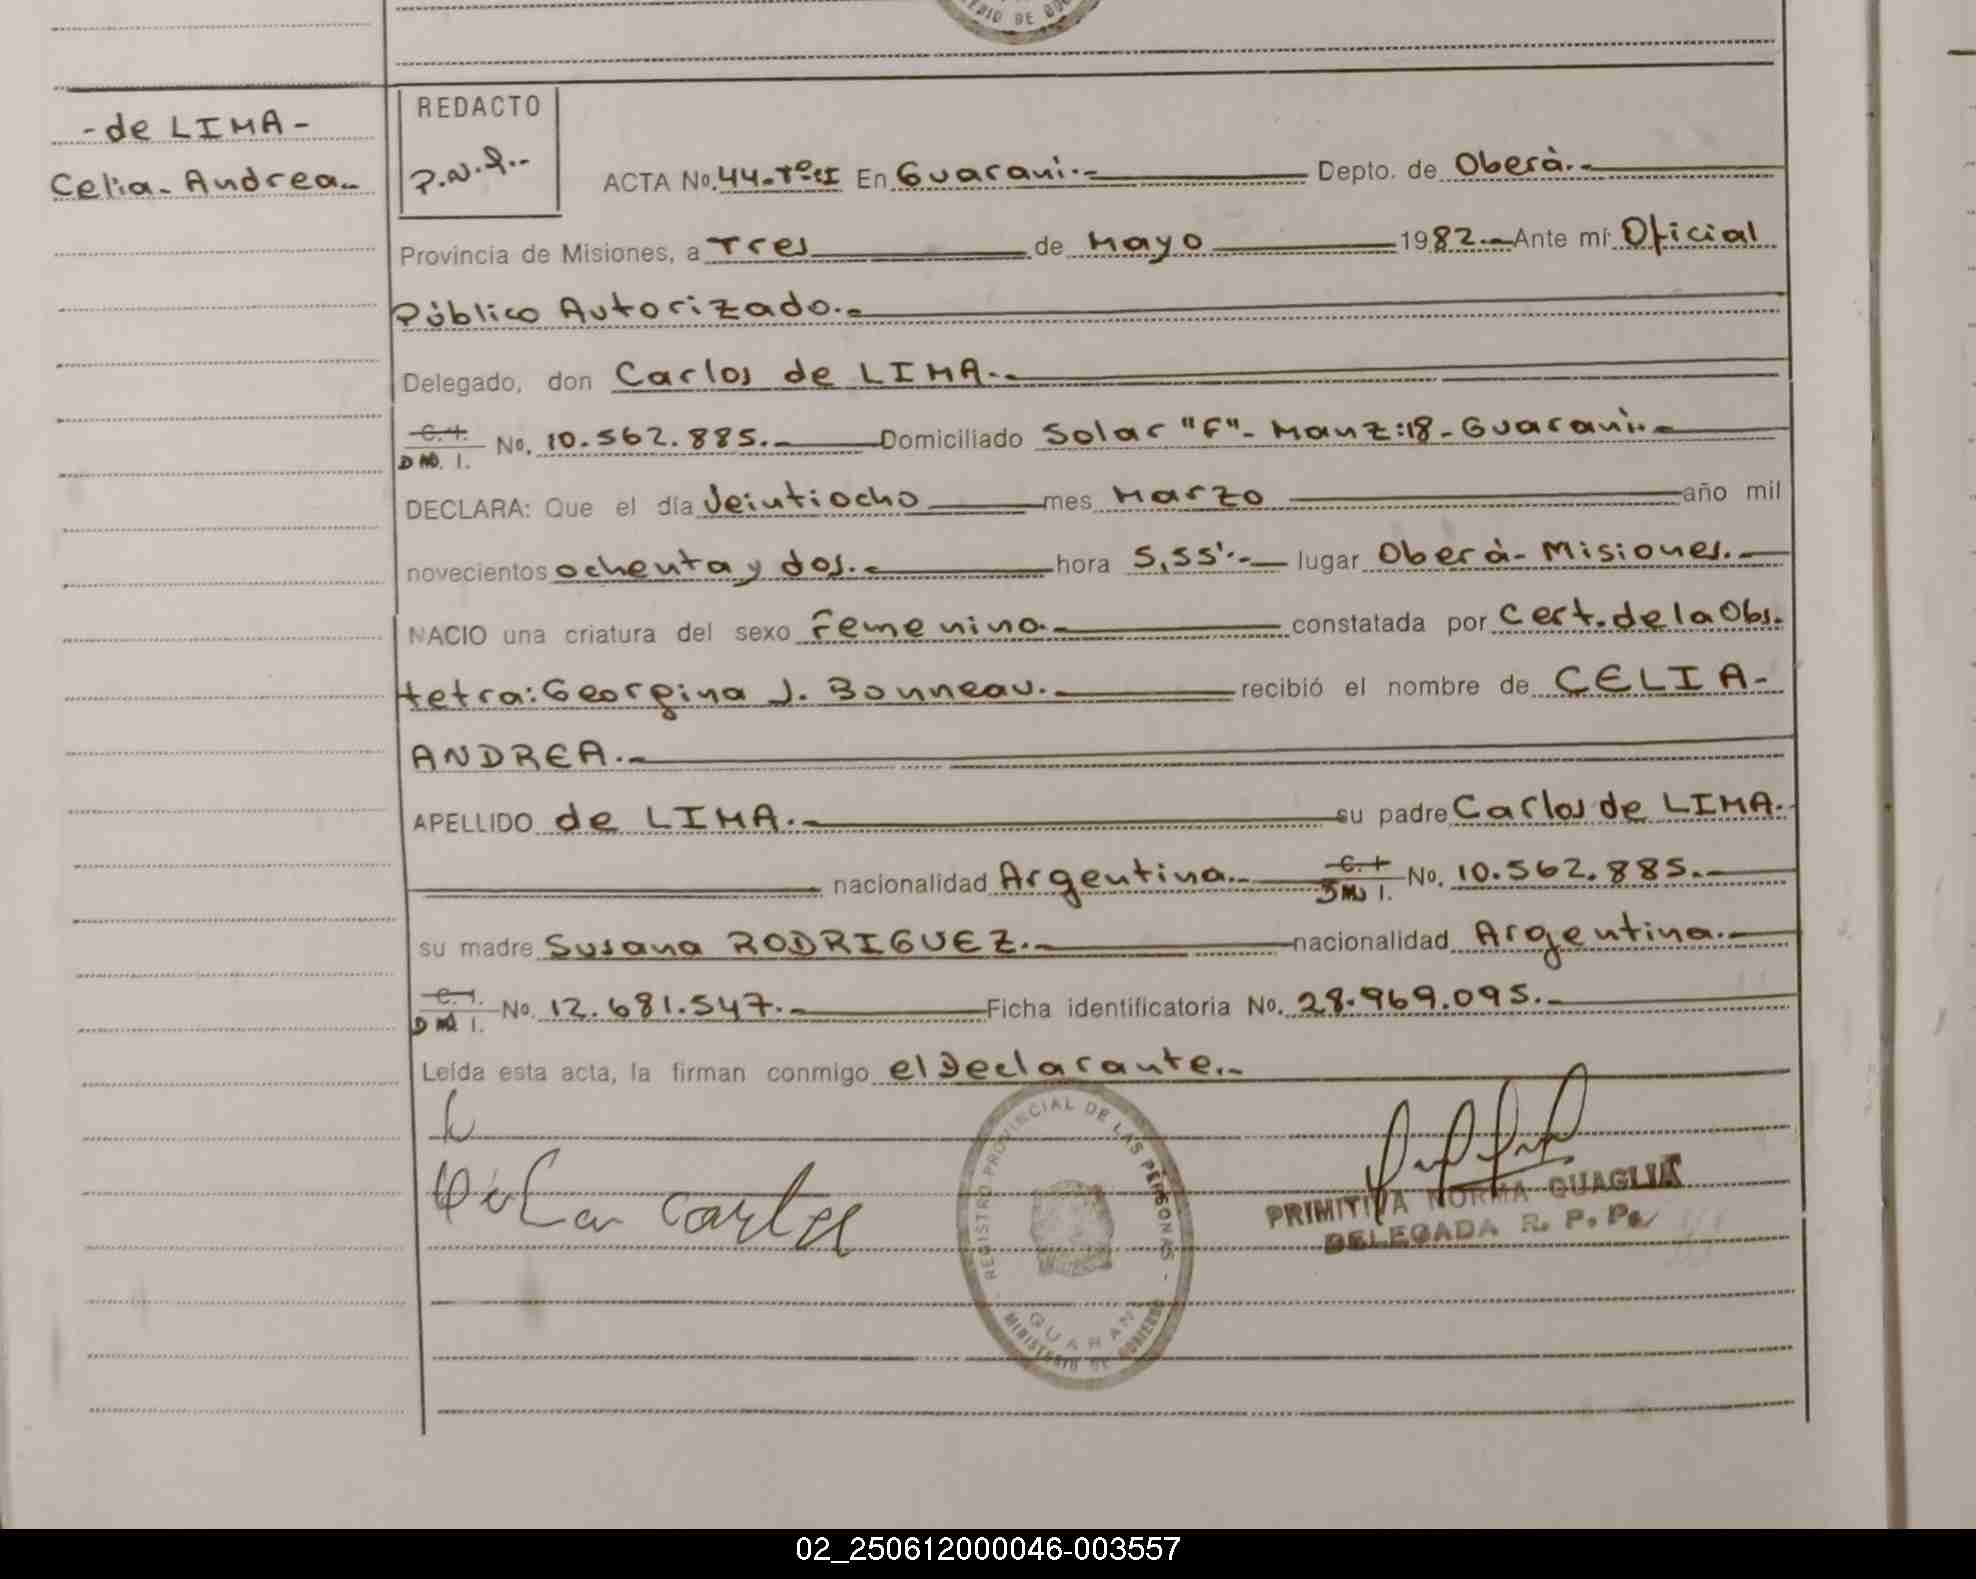 -de LIMA-
Celia- Andrea-
REDACTO
P.N.Q.-
ACTA No. 44-Tº-I En Guaraní.- Depto. de Oberá.-
Provincia de Misiones, a Tres de Mayo 1982.- Ante mí Oficial
Público Autorizado.-
Delegado, don Carlos de LIMA.-
C.I.
D.N.I. No. 10.562.885.- Domiciliado Solar "F"- Manz:18-Guaraní.-
DECLARA: Que el día Veintiocho mes Marzo año mil
novecientos ochenta y dos.- hora 5,55'.- lugar Oberá- Misiones.-
NACIO una criatura del sexo Femenino.- constatada por Cert. de la Obs.
tetra: Georgina J. Bonneau.- recibió el nombre de CELIA-
ANDREA.-
APELLIDO de LIMA.- su padre Carlos de LIMA.
nacionalidad Argentina.- C.I.
D.N.I. No. 10.562.885.-
su madre Susana RODRIGUEZ.- nacionalidad Argentina.-
C.I.
D.N.I. No. 12.681.547.- Ficha identificatoria No. 28.969.095.-
Leída esta acta, la firman conmigo el Declarante.-
Carlos
REGISTRO PROVINCIAL DE LAS PERSONAS -
GUARANI
MINISTERIO DE GOBIERNO
PRIMITIVA NORMA QUAGLIA
DELEGADA R. P. P.
02_250612000046-003557